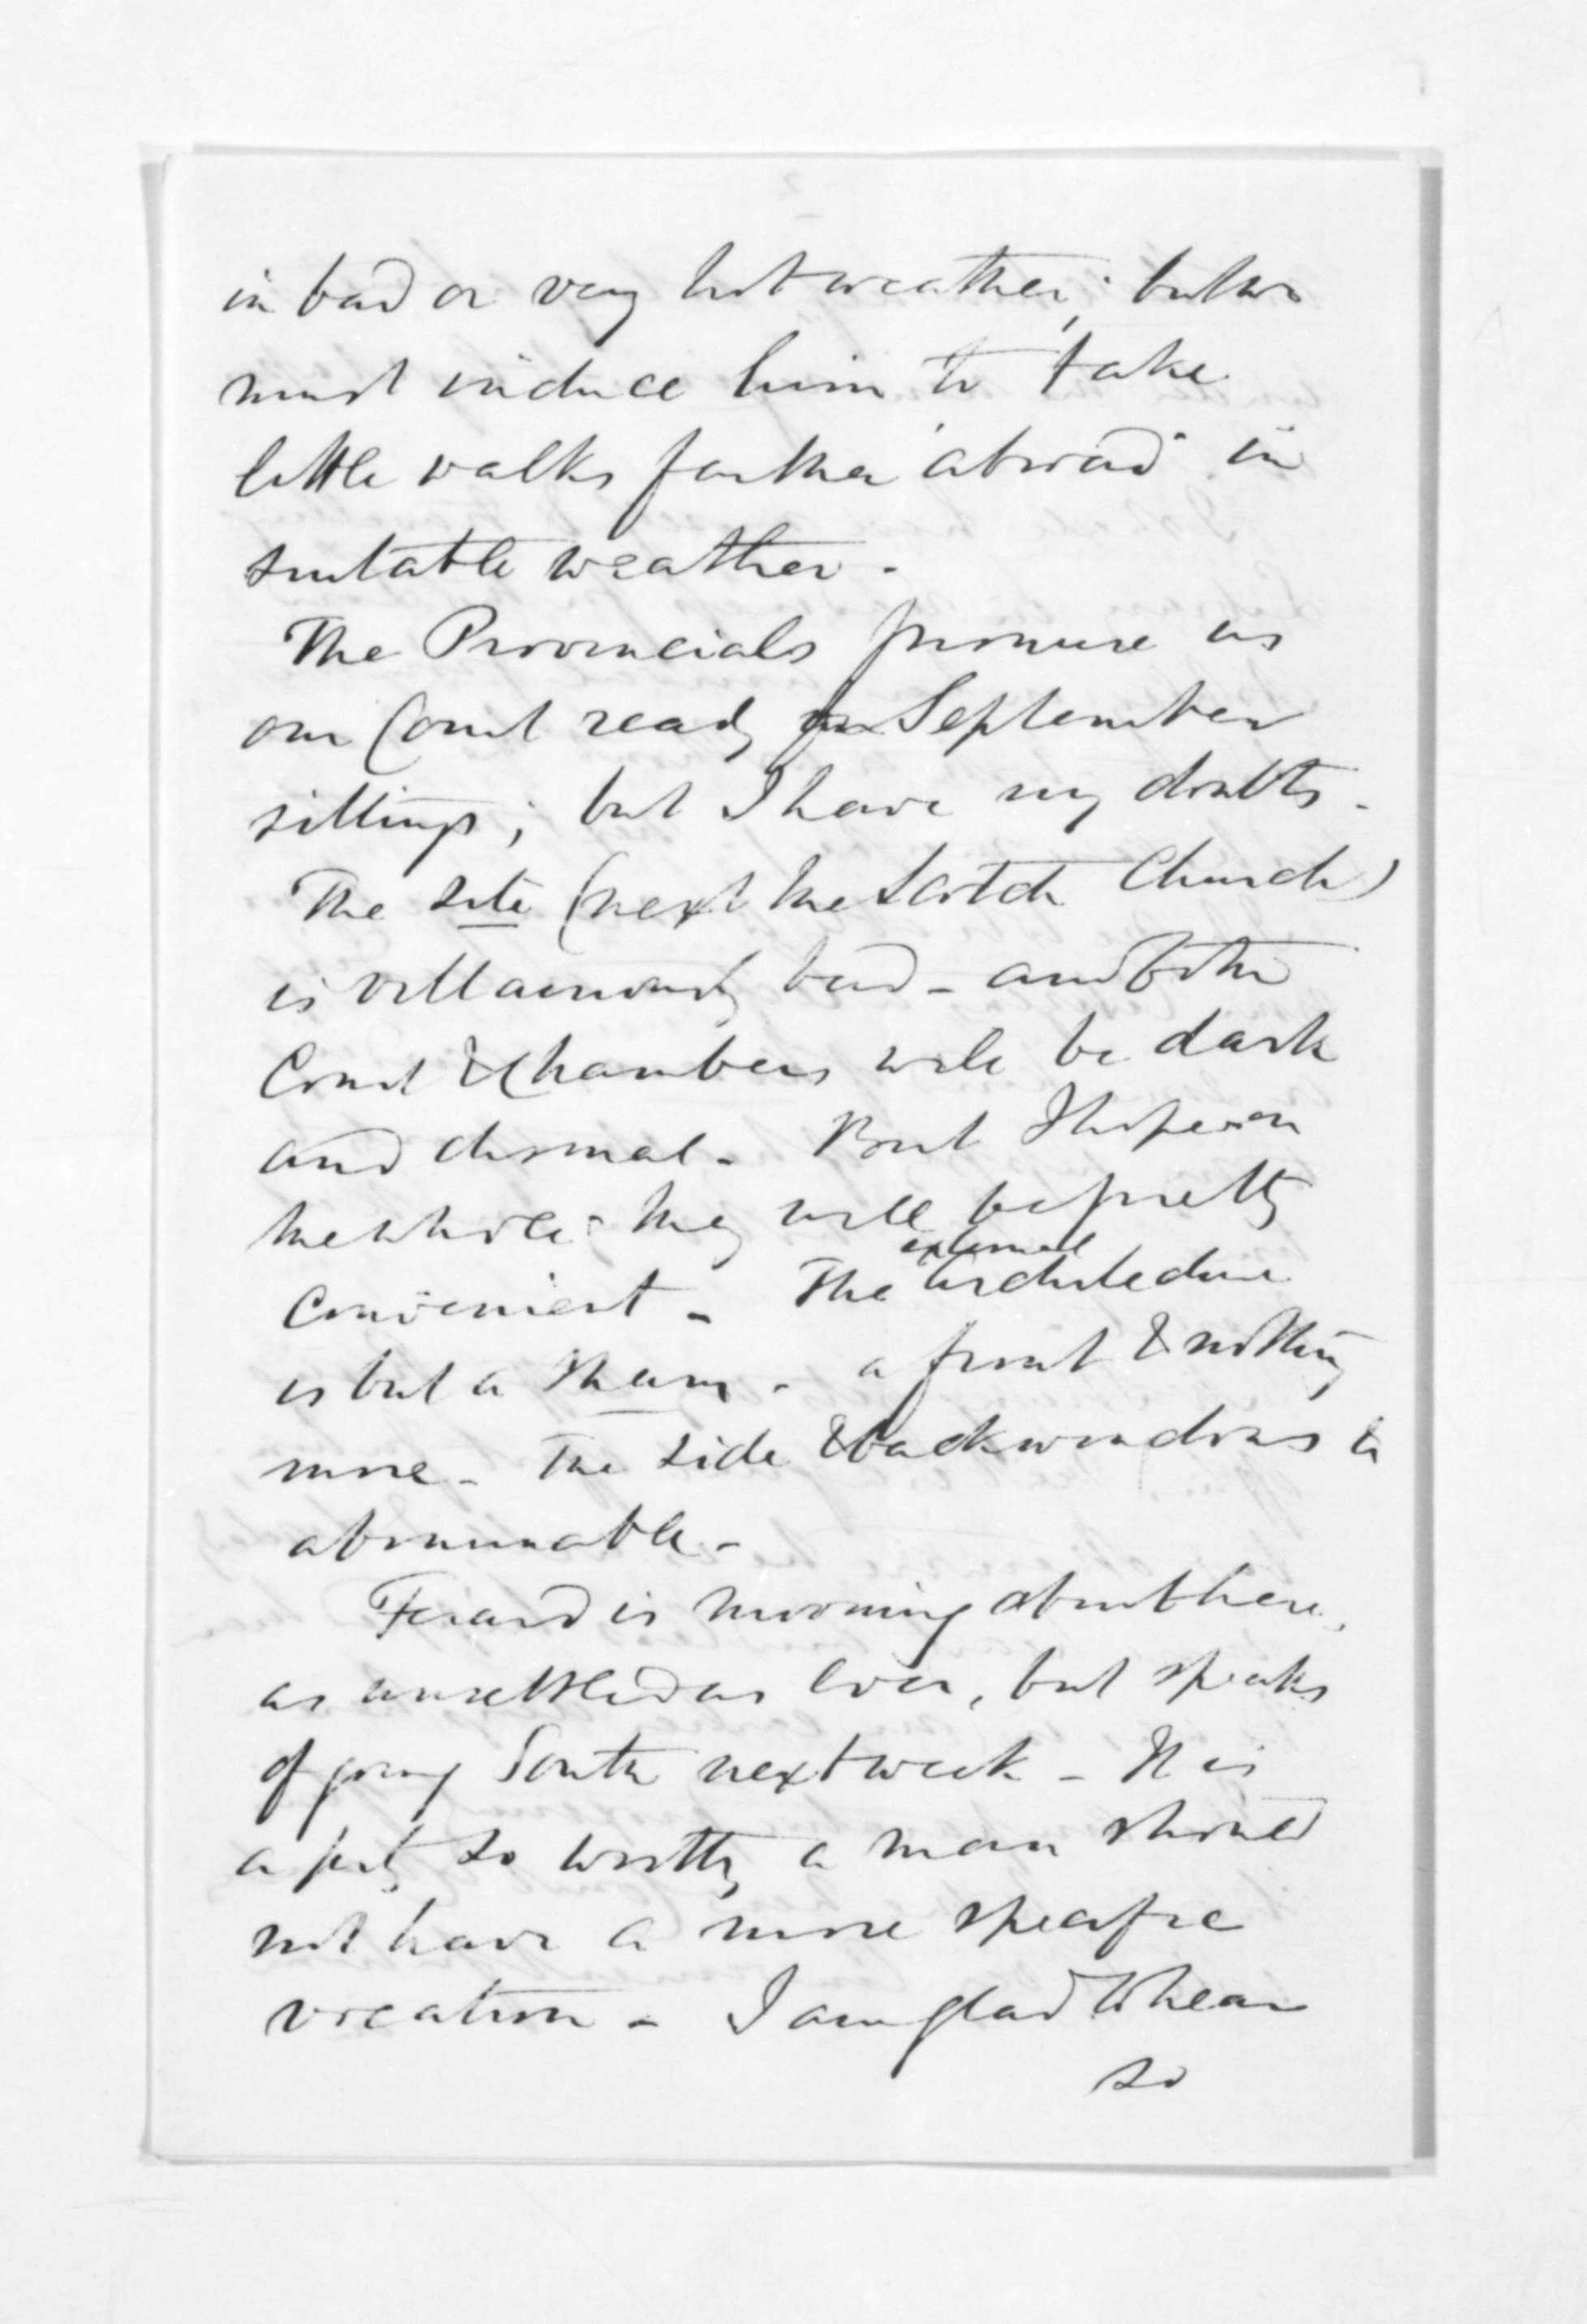 in bad or very hot weather; but we
must induce him to take
little walks farther abroad in
suitable weather.
The Provincials promise us
our Court ready for September
sittings; but I have my doubts.
The site (next the Scotch Church)
is villainously bad - and both
Court & Chambers will be dark
and dismal. But I hope on
the whole they will be pretty
convenient. The external architecture
is but a sham - a front & nothing
more. The side & back windows
abominable.
is mooning about here,
as unsettled as ever, but speaks
of going South next week - It is
a pity so worthy a man should
not have a more specific
vocation. I am glad to hear
so